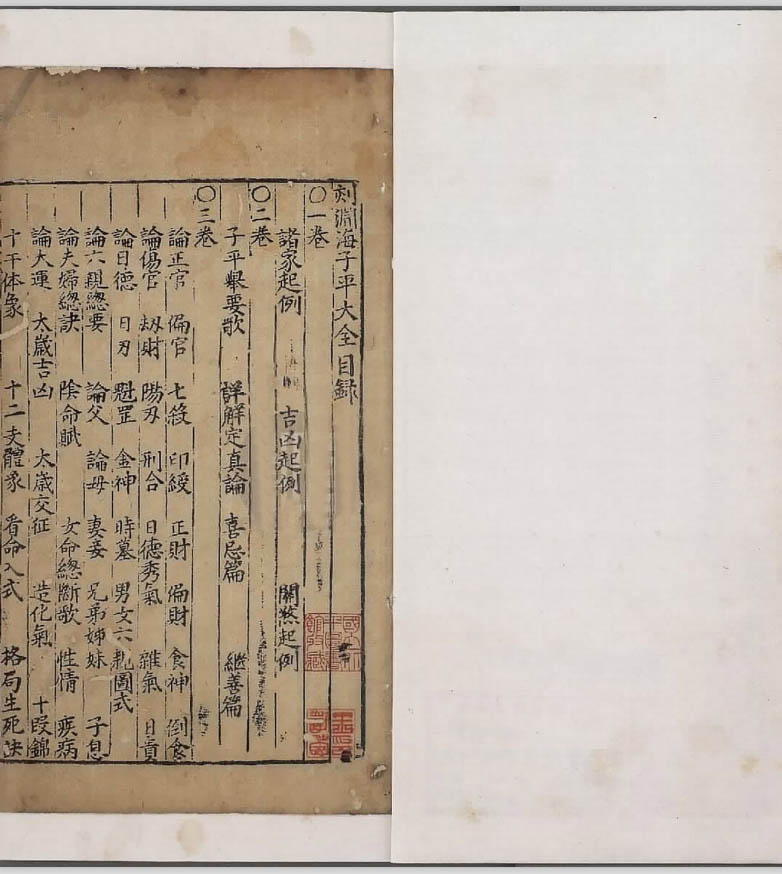 刻淵海子平大全目録
〇一卷
諸家起例 吉凶起例 關煞起例
〇二卷
子平舉要歌 詳解定真論 喜忌篇 繼善篇
〇三卷
論正官 偏官 七殺 印綬 正財 偏財 食神 倒食
論傷官 刼財 陽刃 刑合 日德秀氣 雜氣 日貴
論日德 日刃 魁罡 金神 時墓 男女六親圖式
論六親總要 論父 論母 妻妾 兄弟姊妹 子息
論夫婦總訣 陰命賦 女命總斷歌 性情 疾病
論大運 太歲吉凶 太歲交征 造化氣 十段錦
十干体象 十二支體象 看命入式 格局生死訣